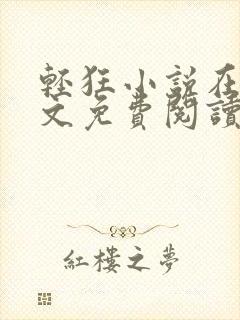 輕狂小說在
文免費閱讀
紅樓之夢